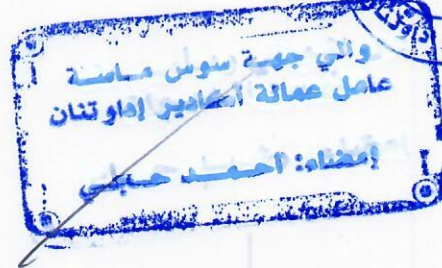 والي جهة سوس ماسة
عامل عمالة أكادير إداوتنان
إمضاء: أحمد حجي